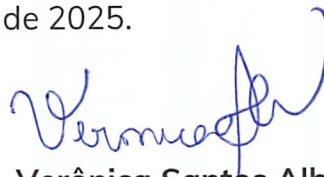 de 2025.
Verônica Santos Alb